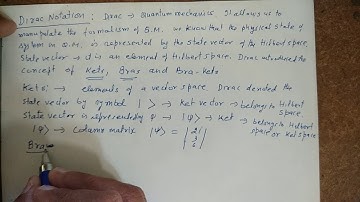 Dirac Notation : Dirac → Quantum mechanics. It allows us to
manupulate the formalism of Q.M. we know that the physical state of
system in Q.M. is represented by the state vector of the Hilbert space.
State vector → it is an element of Hilbert space. Dirac introduced the
concept of Kets, Bras and Bra-Kets
Kets: → elements of a vector space. Dirac denoted the
state vector by symbol | > → Ket vector → belongs to Hilbert space.
State vector is represented by ψ → |ψ> → Ket → belongs to Hilbert space or Ket space
|ψ> → Column matrix |ψ> = |2i 3 6|
Bra →